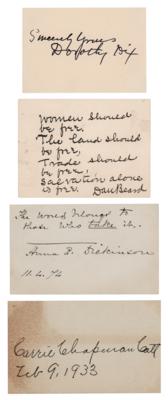 Sincerely Yours
Dorothy Dix
Women should
be free,
The land should
be free,
Trade should
be free,
Salvation alone
is free. Dan Beard
The World belongs to
those who take it.
Anna E. Dickinson
11.4.74
Carrie Chapman Catt
Feb 9, 1933